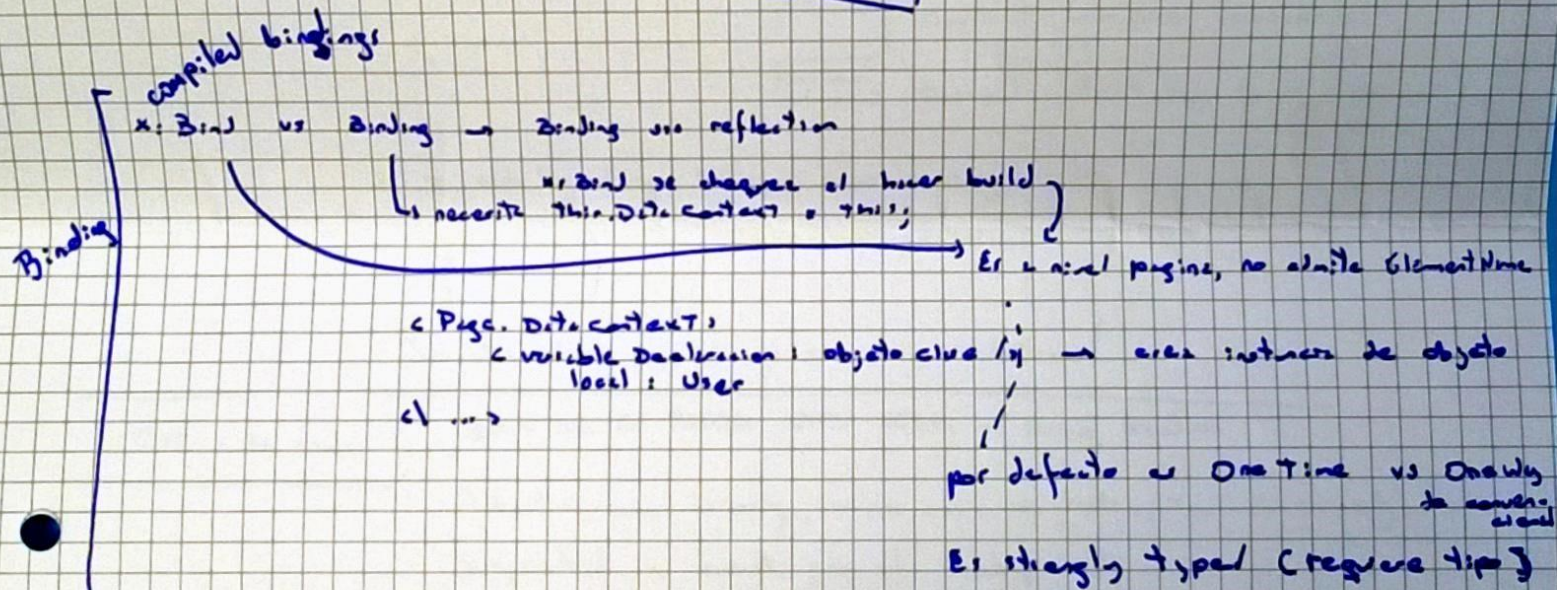 compiled bindings
x:Bind vs Binding → Binding usa reflection
x:Bind se chequea al hacer build
↳ necesita this.DataContext = this;
Binding
Es a nivel pagina, no admite ElementName
<Page.DataContext>
< variable Declaracion : objeto clase /> → crea instancia de objeto
local : User
<\ ...>
por defecto es OneTime vs OneWay
de conven-
cional
Es strongly typed (requiere tipo)